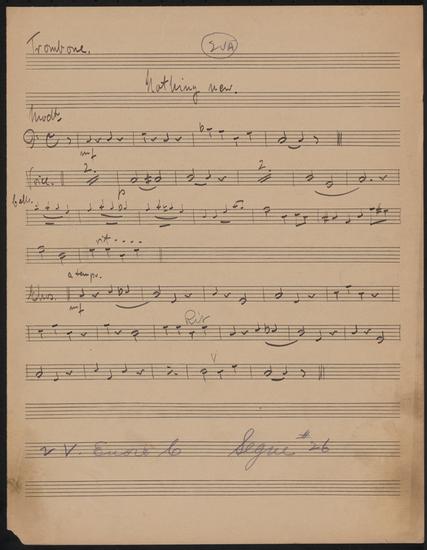 Trombone. 2VA
Nothing new.
Modto
mf
Voice. 2. 2.
Bells. p
rit....
a tempo.
Chos.
mf
Rit
V
2 V. Encore C Segue #26